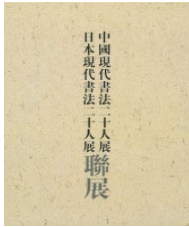 中國現代書法二十人展
日本現代書法二十人展
聯展